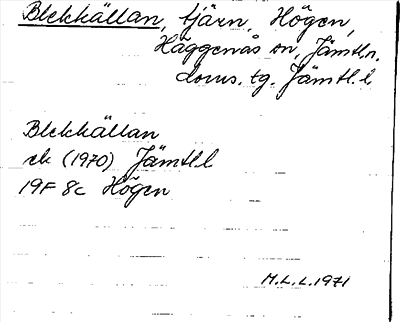 Blekkällan, tjärn, Högen,
Häggenås sn, Jämtl.n.
dovs. tg. Jämtl. l
Blekkällan
ek (1970) Jämtl.l
19F 8c Högen
M.L.L. 1971